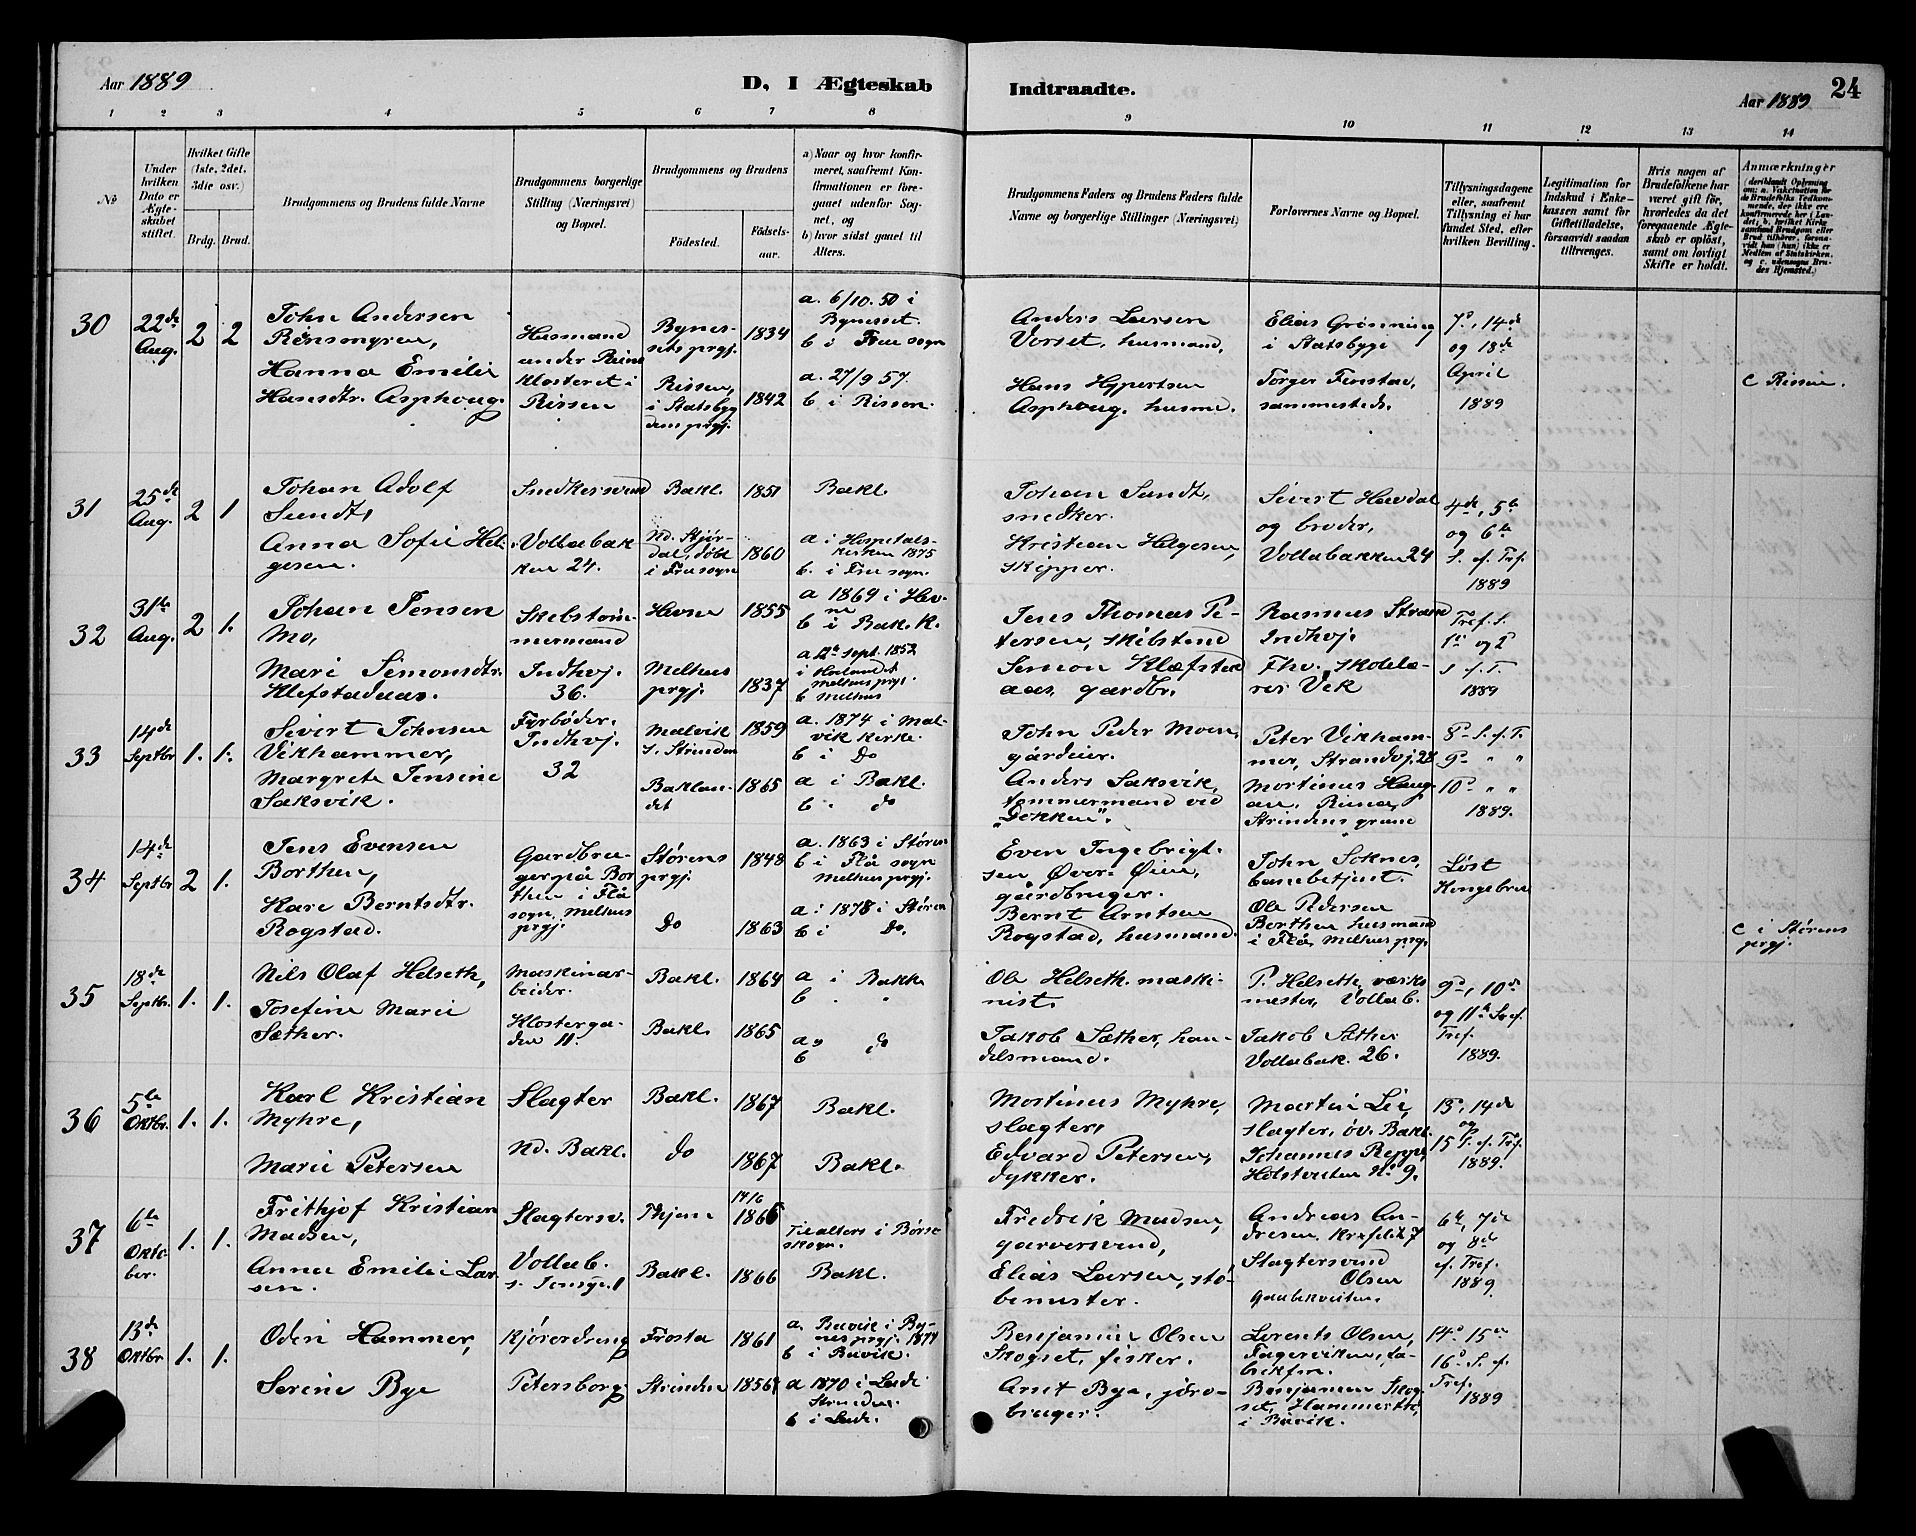 Aar 1889
D, I Ægteskab
Indtraadte.
24
Aar 1889
1 2 3 4 5 6 7 8
9 10 11 12 13 14
No
Under hvilken Dato er Ægteskabet stiftet.
Hvilket Gifte (1ste, 2det, 3die osv.)
Brdg. Brud.
Brudgommens og Brudens fulde Navne
Brudgommens borgerlige Stilling (Næringsvei) og Bopæl.
Brudgommens og Brudens
Födested.
Födselsaar.
a) Naar og hvor konfirmeret, saafremt Konfirmationen er foregaaet udenfor Sognet, og
b) hvor sidst gaaet til Alters.
Brudgommens Faders og Brudens Faders fulde Navne og borgerlige Stillinger (Næringsvei)
Forlovernes Navne og Bopæl.
Tillysningsdagene eller, saafremt Tillysning ei har fundet Sted, efter hvilken Bevilling.
Legitimation for Indskud i Enkekassen samt for Giftetilladelse, forsaavidt saadan tiltrænges.
Hvis nogen af Brudefolkene har været gift før, hvorledes da det foregaaende Ægteskab er opløst, samt om lovligt Skifte er holdt.
Anmærkninger
30
22de Aug.
2 2
John Andersen
Hanna Emilie
Hansdtr. Asphoug.
Husmand
under Reins
Klosteret i
Rissen
Bynes-
sets prgj.
1834
a. 6/10. 50 i
Bynesset.
b i Frue sogn
Rissen,
i Stadsbyg
dens prgj.
1842
a. 27/9 57.
b i Rissen.
Anders Larsen
Verset, husmand,
Hans Hypertsen
Asphoug. husmd.
Elias Grønning
i Statsbygd
Torger Fenstad,
sammesteds.
7d, 14de
og 18de
April
1889
c Rissen.
31
25de Aug.
2 1
Johan Adolf
Sundt,
Anna Sofie Hel-
gesen.
Snedkersvend
Vollabak
ken 24.
Bakl. 1851
Bakl.
Nd. Stjør-
dal, døbt
i Fruesogn
1860
a i Hospitals-
kirken 1875
b. i Frue sogn.
Johan Sundt,
snedker.
Kristian Helgesen,
skipper.
Sivert Havdal
og broder,
Vollabakken 24
4de, 5te
og 6te
S. ef. Tref.
1889
32
31te Aug.
2 1.
Johan Jensen
Mo,
Mari Simonsdtr.
Klefstadaas.
Skibstøm-
mermand
Indhvj.
36.
Hevne 1855
a 1869 i Hev-
ne
b i Bak. K.
Melhus
prgj. 1837
a 12te sept. 1852
i Hølandet
Melhus prgj.
b Melhus
Jens Thomas Pe-
tersen, skibstmd
Simon Klæfstad
aas, gardbr.
Rasmus Strand
Indhvj.
Fhv. skolelæ-
rer Vik
Tref. S.
S. f. T.
1889
33
14de Septbr
1. 1.
Sivert Johnsen
Vikhammer,
Margrete Jensine
Saksvik.
Fyrbøder.
Indhvj.
32
Malvik
i. Strinden
1859
a. 1874 i Mal-
vik kirke.
b i Do
Baklan-
det
1865
a i Bakl.
b " do
John Peder Moen,
gårdeier.
Anders Saksvik,
tømmermand ved
"Dokken".
Peter Vikham-
mer, Strandvj. 28
Mortinus Haug-
an, Rinna,
Strindens grund
8de S. ef. T.
9de " "
10de " "
1889.
34
14de Septbr
2 1.
Jens Evensen
Borthen,
Kari Berntsdtr.
Rogstad.
Gardbru-
ger på Bor
then i Flå
sogn, Melhus
prgj.
Størens
prgj. 1848
a. 1863 i Støren
b i Flå sogn
Melhus prgj.
Do 1863
a: 1878 i Støren
b i Do.
Even Ingebrigt-
sen Øvre Øien,
gårdbruger.
Bernt Arntsen
Rogstad, husmand.
John Soknes,
banebetjent.
Ole Pedersen
Borthen husmand
i Flå, Melhus prgj.
Løst
Kongebrev
c i Størens
prgj.
35
18de Septbr.
1. 1.
Nils Olaf Helseth,
Josefine Marie
Sæther.
Maskinar-
beider.
Klosterga-
den 11.
Bakl. 1864
a i Bakke
b. "
Bakl. 1865
a, do
b
Ole Helseth. maski-
nist.
Jakob Sæther, han-
delsmand.
P. Helseth, værks
mester, Vollab.
Jakob Sæther
Vollabak. 26.
9de, 10de
og 11te S. ef.
Tref.
1889.
36
5te Oktbr.
1. 1.
Karl Kristian
Myhre,
Marie Petersen
Slagter
Nd. Bakl.
Bakl. 1867
Bakl.
do 1867
Bakl.
Mortinus Myhre,
slagter,
Edvard Petersen,
dykker.
Martin Lie,
slagter, öv. Bakl.
Johannes Reppe,
Holstveiten No 9.
13, 14de
og
15 S. ef. Tref.
1889.
37
6te
Okto
ber.
1. 1.
Frithjof Kristian
Madsen,
Anna Emilie Lar-
sen.
Slagtersv.
Vollab.
Thjem
14/6
1866
Til alters i Børse
skogn.
Bakl. 1866
Bakl.
Fredrik Madsen,
garversvend,
Elias Larsen, stö-
bemester.
Andreas An-
dresen,
Slagtersvend
Olsen
Gaubekveiten.
6te, 7de
og 8de
ef. Tref.
1889
38
13de Oktbr
1. 1.
Odin Hammer,
Serine Bye
Kjøredreng
Petersborg
Frosta 1861
a. Buvik i By-
nes prgj. 1877
b i Buvik.
Strinden
a 1870 i Lade
Strinden.
b i Lade.
Benjamin Olsen
Skogset, fisker.
Arnt Bye, jdro-
bruger.
Lorents Olsen,
Fagerviken, fa-
brikfm.
Benjamin Skog-
set, Hammersth,
i Buvik.
14de 15de
16de S. ef.
Tref.
1889